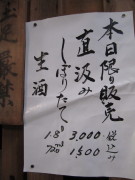 本日限り販売
直汲み
しぼりたて
生酒
1.8ℓ 3,000 税込み
720ml 1,500
土足厳禁